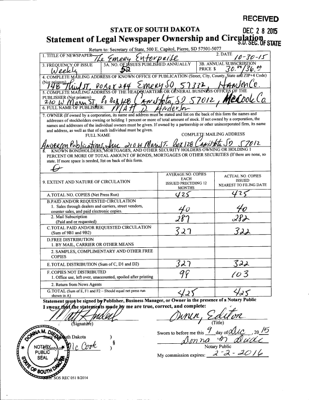 RECEIVED
DEC 28 2015
S.D. SEC. OF STATE
STATE OF SOUTH DAKOTA
Statement of Legal Newspaper Ownership and Circulation
Return to: Secretary of State, 500 E. Capitol, Pierre, SD 57501-5077
1. TITLE OF NEWSPAPER The Emery Enterprise
2. DATE 10-30-15
1. FREQUENCY OF ISSUE Weekly
3A. NO. OF ISSUES PUBLISHED ANNUALLY 52
3B. ANNUAL SUBSCRIPTION PRICE $
4. COMPLETE MAILING ADDRESS OF KNOWN OFFICE OF PUBLICATION (Street, City, County, State and ZIP+4 Code)
Emery SD 57332, Hanson Co.
5. COMPLETE MAILING ADDRESS OF THE HEADQUARTERS OF GENERAL BUSINESS OFFICES OF THE PUBLISHER
210 W. Main St. PO Box 128 Canistota SD 57012, McCook Co.
6. FULL NAME OF PUBLISHER Matt D. Anderson
7. OWNER (If owned by a corporation, its name and address must be stated and list on the back of this form the names and addresses of stockholders owning or holding 1 percent or more of total amount of stock. If not owned by a corporation, the names and addresses of the individual owners must be given. If owned by a partnership or other unincorporated firm, its name and address, as well as that of each individual must be given.
FULL NAME
COMPLETE MAILING ADDRESS
Anderson Publications, Inc 210 W Main St. Box 128 Canistota SD 57012
8. KNOWN BONDHOLDERS, MORTGAGES, AND OTHER SECURITY HOLDERS OWNING OR HOLDING 1 PERCENT OR MORE OF TOTAL AMOUNT OF BONDS, MORTGAGES OR OTHER SECURITIES (If there are none, so state. If more space is needed, list on back of this form.
9. EXTENT AND NATURE OF CIRCULATION
AVERAGE NO. COPIES EACH ISSUED PRECEDING 12 MONTHS
ACTUAL NO. COPIES ISSUED NEAREST TO FILING DATE
A. TOTAL NO. COPIES (Net Press Run) 425 425
B. PAID AND/OR REQUESTED CIRCULATION
1. Sales through dealers and carriers, street vendors, counter sales, and paid electronic copies. 40 40
2. Mail Subscription (Paid and/or requested) 287 282
C. TOTAL PAID AND/OR REQUESTED CIRCULATION (Sum of 9B1 and 9B2) 327 322
D. FREE DISTRIBUTION
1. BY MAIL, CARRIER OR OTHER MEANS
2. SAMPLES, COMPLIMENTARY AND OTHER FREE COPIES
E. TOTAL DISTRIBUTION (Sum of C, D1 and D2) 327 322
F. COPIES NOT DISTRIBUTED
1. Office use, left over, unaccounted, spoiled after printing 98 103
2. Return from News Agents
G. TOTAL (Sum of E, F1 and F2 - Should equal net press run shown in A) 425 425
Statement must be signed by Publisher, Business Manager, or Owner in the presence of a Notary Public
I swear that the statements made by me are true, correct, and complete:
Matt Anderson
Owner, Editor
(Signature)
(Title)
South Dakota
Sworn to before me this 9 day of Dec, 2015
McCook
Notary Public
My commission expires: 2-2-2016
DONNA M.
NOTARY PUBLIC
SEAL
SOUTH DAKOTA